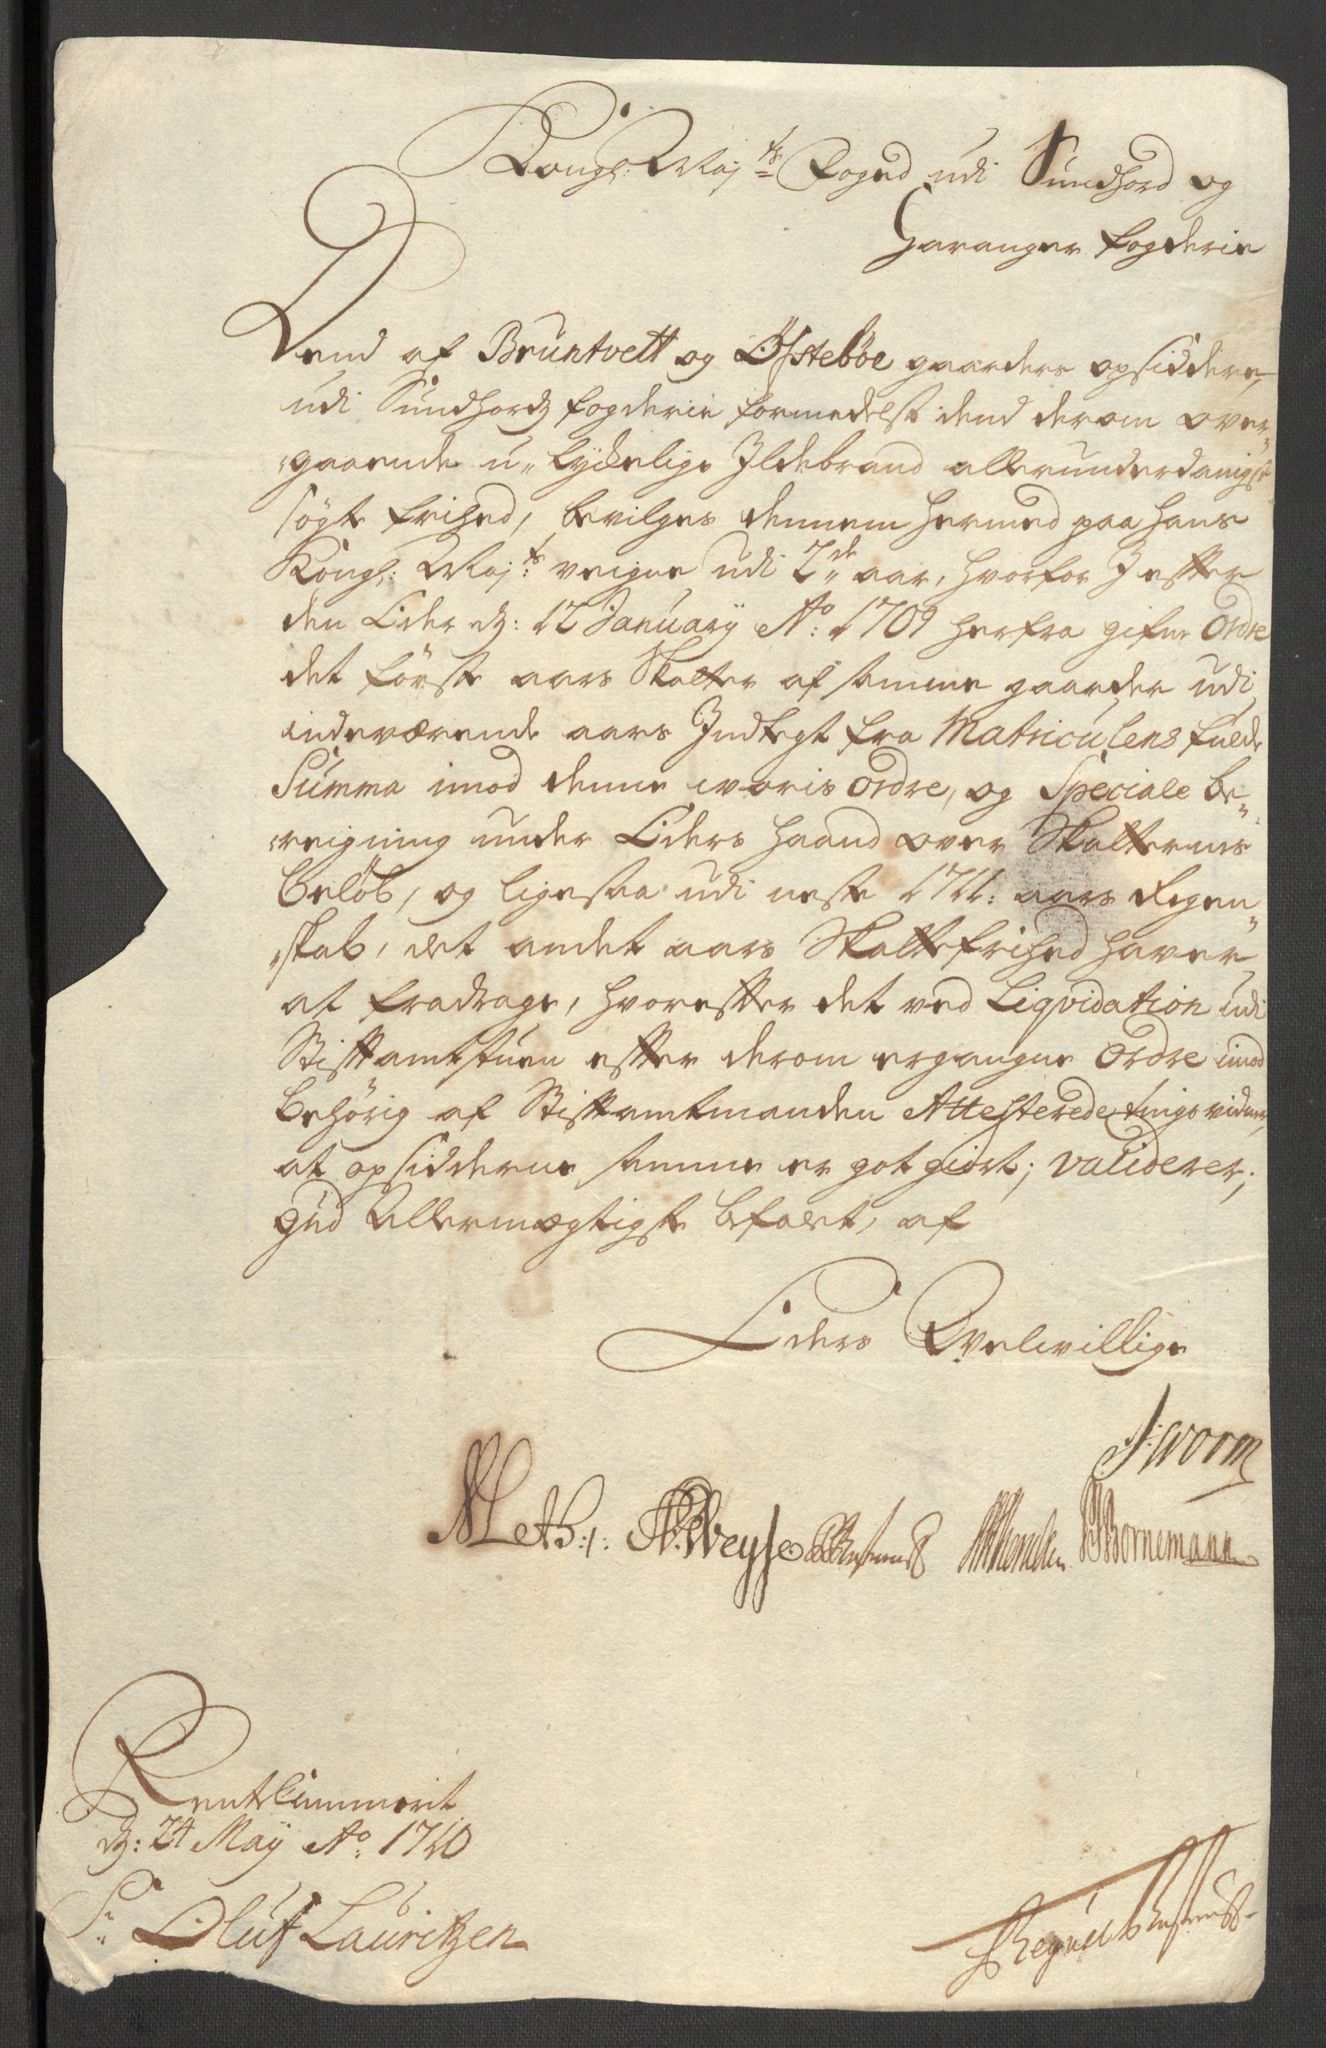 Kongl: May:ts Foged udi Sundhord og
Haranger fogderie
Dend af Bruntvett og Øfstebøe gaarders opsiddere,
udi Sundhordz fogderie formedelst dend derom over-
gaaende u-lyckelige Ildebrand allerunderdanigst
søgte frihed, bevilges dennem hermed paa hans
Kongl: May:ts veigne udi 2de aar, hvorfor I efter
den Eder d: 12 January Ao: 1709 herfra gifne Ordre
det første aars Skatter af samme gaarder udi
indeværende aars Indtegt fra Matriculens fulde
Summa imod denne woris Ordre, og Speciale be-
reigning under Eders haand over Skatternes
beløb, og ligesaa udi neste 1711: aars Regen-
skab, det andet aars Skattefrihed haver
at fradrage, hvorefter det ved Liqvidation udi
Stiftamtstuen efter derom ergangne Ordre imod
behørig af Stiftamtmanden Attesterede tingsvidne,
at opsidderne samme er got giort, validerer;
Gud Allermægtigste befalet, af
Eders Velwillige
J. Worm
Meth:
Weyse
Bornemann
Rentekammerit
d: 24 May Ao: 1710
Sr: Oluf Lauritzen